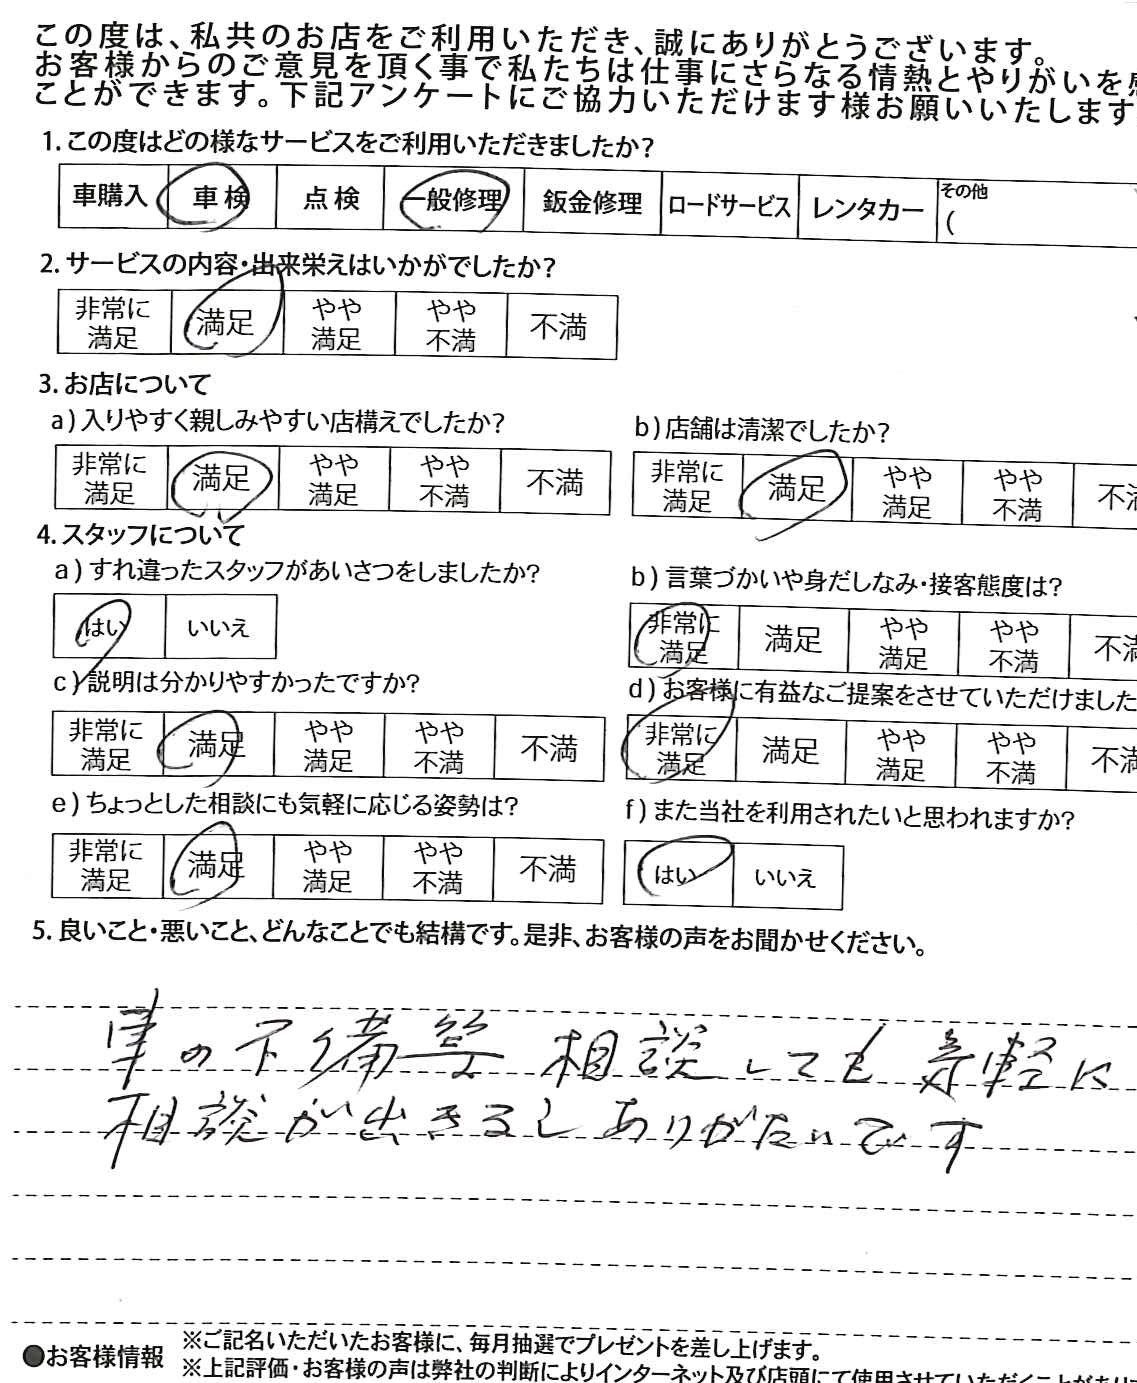 この度は、私共のお店をご利用いただき、誠にありがとうございます。
お客様からのご意見を頂く事で私たちは仕事にさらなる情熱とやりがいを感
ことができます。下記アンケートにご協力いただけます様お願いいたします
1. この度はどの様なサービスをご利用いただきましたか?
車購入 車検 点検 一般修理 鈑金修理 ロードサービス レンタカー その他 (
2. サービスの内容・出来栄えはいかがでしたか?
非常に満足 満足 やや満足 やや不満 不満
3. お店について
a) 入りやすく親しみやすい店構えでしたか?
非常に満足 満足 やや満足 やや不満 不満
b) 店舗は清潔でしたか?
非常に満足 満足 やや満足 やや不満 不満
4. スタッフについて
a) すれ違ったスタッフがあいさつをしましたか?
はい いいえ
b) 言葉づかいや身だしなみ・接客態度は?
非常に満足 満足 やや満足 やや不満 不満
c) 説明は分かりやすかったですか?
非常に満足 満足 やや満足 やや不満 不満
d) お客様に有益なご提案をさせていただけました
非常に満足 満足 やや満足 やや不満 不満
e) ちょっとした相談にも気軽に応じる姿勢は?
非常に満足 満足 やや満足 やや不満 不満
f) また当社を利用されたいと思われますか?
はい いいえ
5. 良いこと・悪いこと、どんなことでも結構です。是非、お客様の声をお聞かせください。
車の不備等 相談しても 気軽に
相談が出きるし ありがたいです
●お客様情報 ※ご記名いただいたお客様に、毎月抽選でプレゼントを差し上げます。
※上記評価・お客様の声は弊社の判断によりインターネット及び店頭にて使用させていただくことがあり